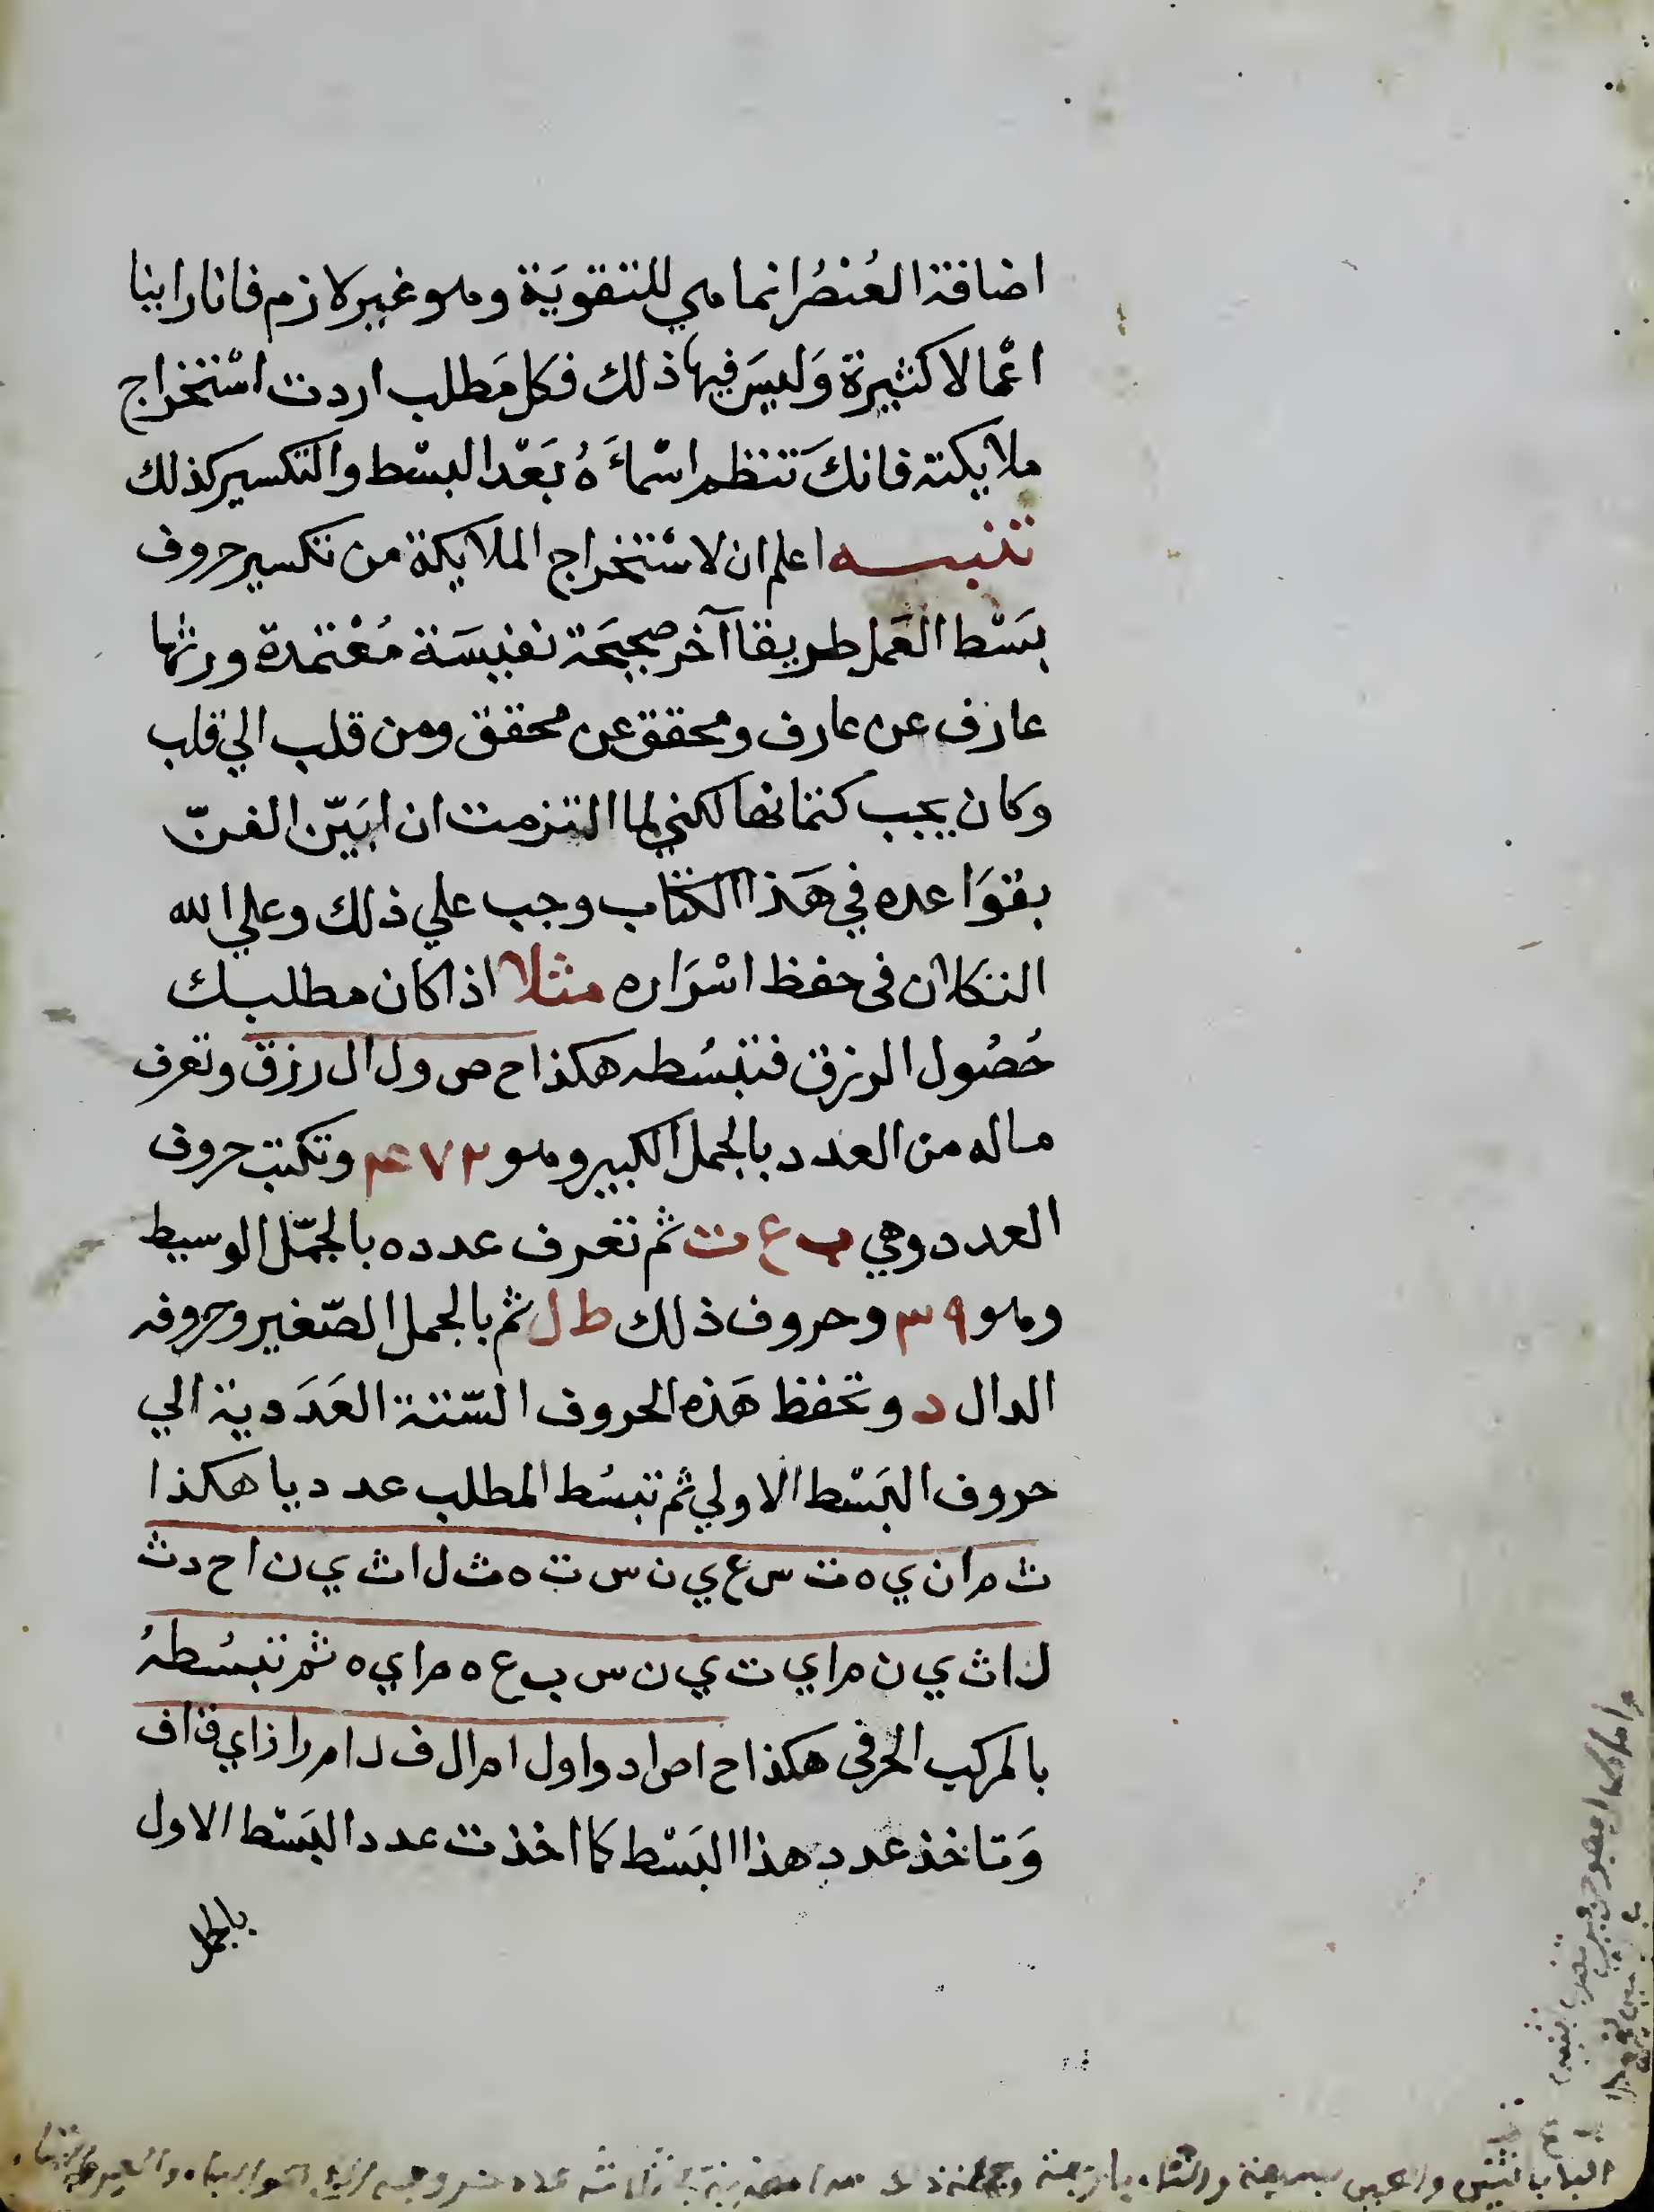 اضافة العُنصُر انما هي للتقوية وهو غير لازم فانا راينا
اعْمالا كثيرة وَليسَ فيها ذلك فكل مَطلب اردت اسْتخراج
ملايكته فانكَ تنظم اسْمآءَهُ بَعْد البسْط والتكسير كذلك
تنبيه اعلم ان لاسْتخراج الملايكة من تكسير حروف
بسْط العَمل طريقا آخر صحيحَة نفيسَة مُعْتمدة ورثها
عارف عن عارف ومحقق عن محقق ومن قلب الي قلب
وكان يجب كتمانها لكني لما التزمت ان ابَيّن الفنّ
بقوَاعده في هَذا الكتاب وجب علي ذلك وعلي الله
التكلان فى حفظ اسْرَاره مثلا اذا كان مطلبك
حُصُول الرزق فتبسُطه هكذا ح ص و ل ا ل ر ز ق وتعرف
ماله من العدد بالجمل الكبير وهو ٤٧٢ وتكتب حروف
العدد وهي ب ع ت ثم تعرف عدده بالجمّل الوسيط
وهو ٣٩ وحروف ذلك ط ل ثم بالجمل الصّغير وحروفه
الدال د وتحفظ هَذه الحروف السّتة العَدَدية الي
حروف البَسْط الاولي ثم تبسُط المطلب عدديا هكذا
ث م ا ن ي ه ت س ع ي ن س ت ه ث ل ا ث ي ن ا ح د ث
ل ا ث ي ن م ا ي ت ي ن س ب ع ه م ا ي ه ثم تبسُطهُ
بالمركب الحرفى هكذا ح ا ص ا د و ا و ل ا م ا ل ف ل ا م ر ا ز ا ي ق ا ف
وَتاخذ عدد هذا البَسْط كما اخذت عدد البَسْط الاول
بالجمل